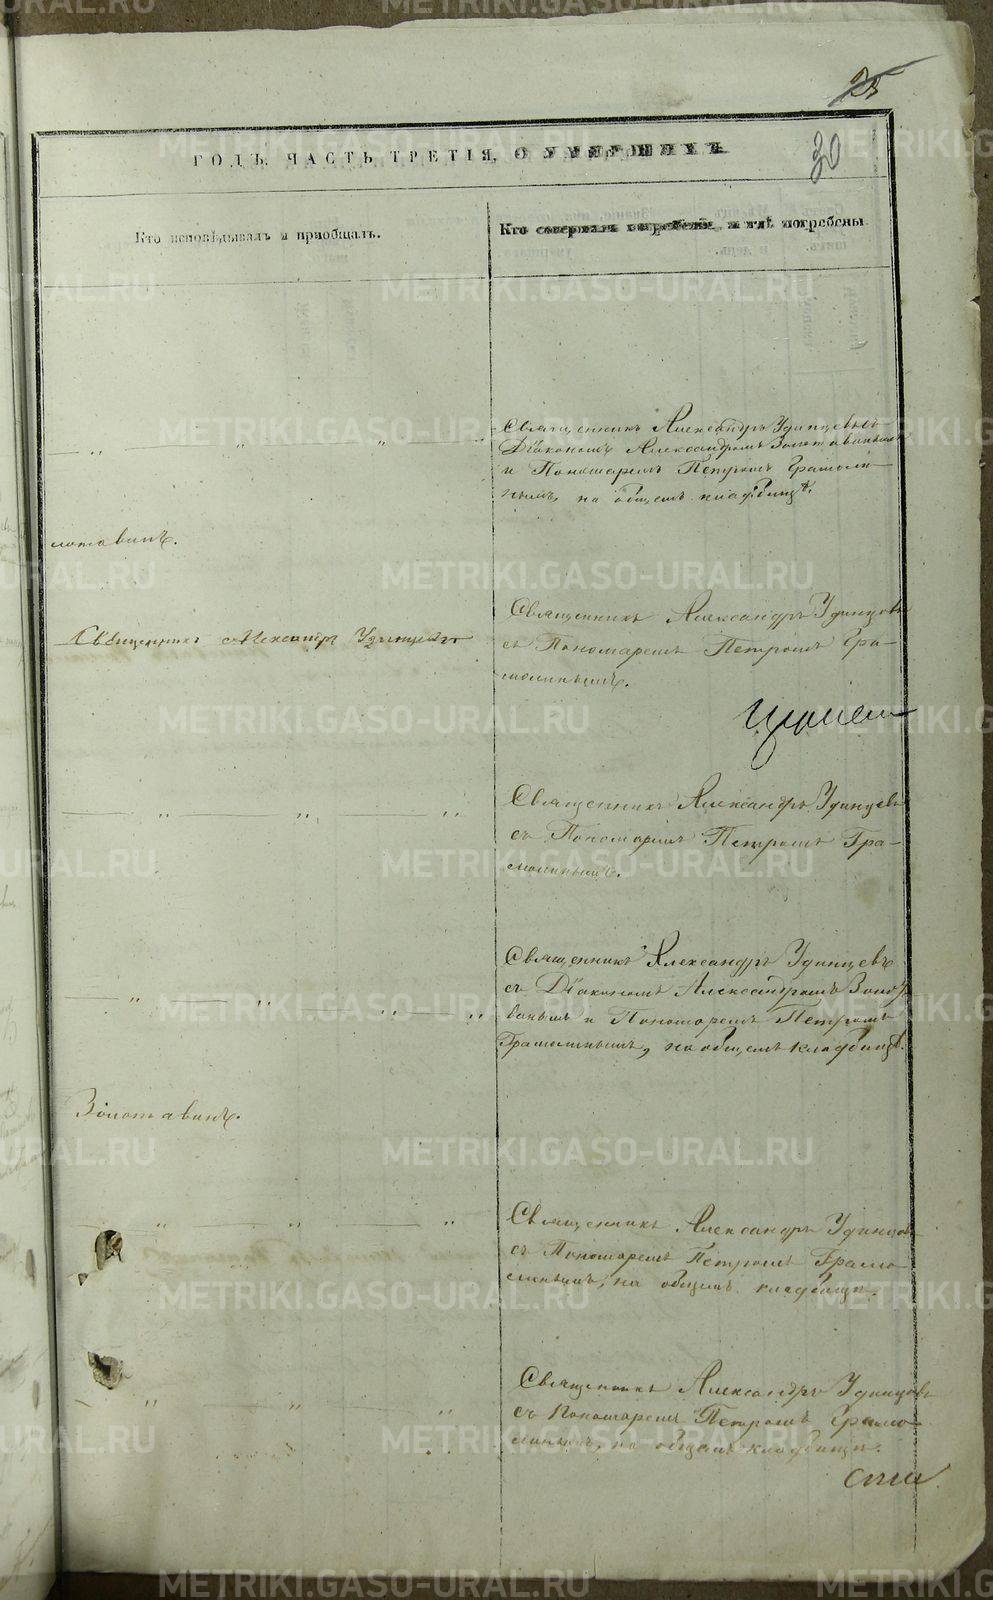 25
30
ГОДЪ. ЧАСТЬ ТРЕТІЯ, О УМЕРШИХЪ
Кто исповѣдывалъ и пріобщалъ.
Кто совершалъ погребеніе и гдѣ погребены
Священникъ Александръ Удинцевъ съ
Діакономъ Александромъ Золотавинымъ
и Пономаремъ Петромъ Грамоли-
нымъ, на общемъ кладбищѣ.
лотавинъ.
Священникъ Александръ Удинцевъ
Священникъ Александръ Удинцовъ
съ Пономаремъ Петромъ Гра-
молинымъ.
Священникъ Александръ Удинцевъ
съ Пономаремъ Петромъ Гра-
молинымъ.
Священникъ Александръ Удинцевъ
съ Діакономъ Александромъ Золот
винымъ и Пономаремъ Петромъ
Грамолинымъ, на общемъ кладбищѣ.
Золотавинъ.
Священникъ Александръ Удинцовъ
съ Пономаремъ Петромъ Грамо-
линымъ, на общемъ кладбищѣ.
Священникъ Александръ Удинцовъ
съ Пономаремъ Петромъ Грамо-
линымъ, на общемъ кладбищѣ.
METRIKI.GASO-URAL.RU